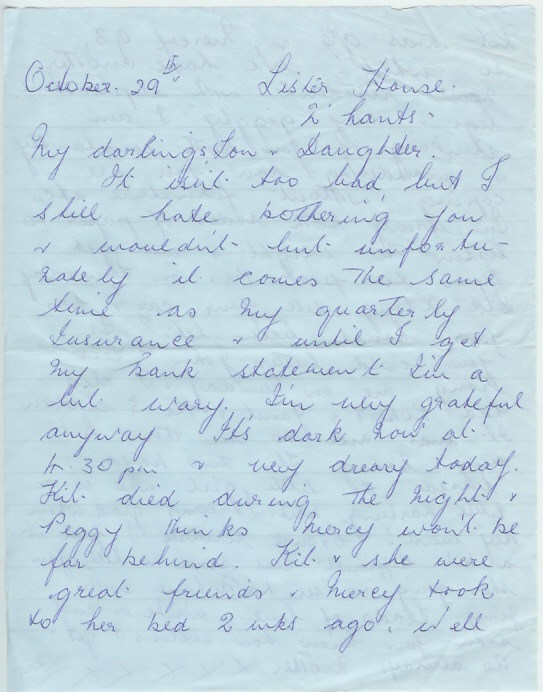 October. 29th Lister House.
2 hants.
My darlings Son & Daughter.
It isn't too bad but I
still hate bothering you
& wouldn't but unfortu-
nately it comes the same
time as my quarterly
Insurance & until I get
my Bank statement I'm a
bit wary. I'm very grateful
anyway Its dark now at
4.30 pm & very dreary today.
Kit died during the night &
Peggy thinks Mercy won't be
far behind. Kit & she were
great friends & Mercy took
to her bed 2 wks ago. Well